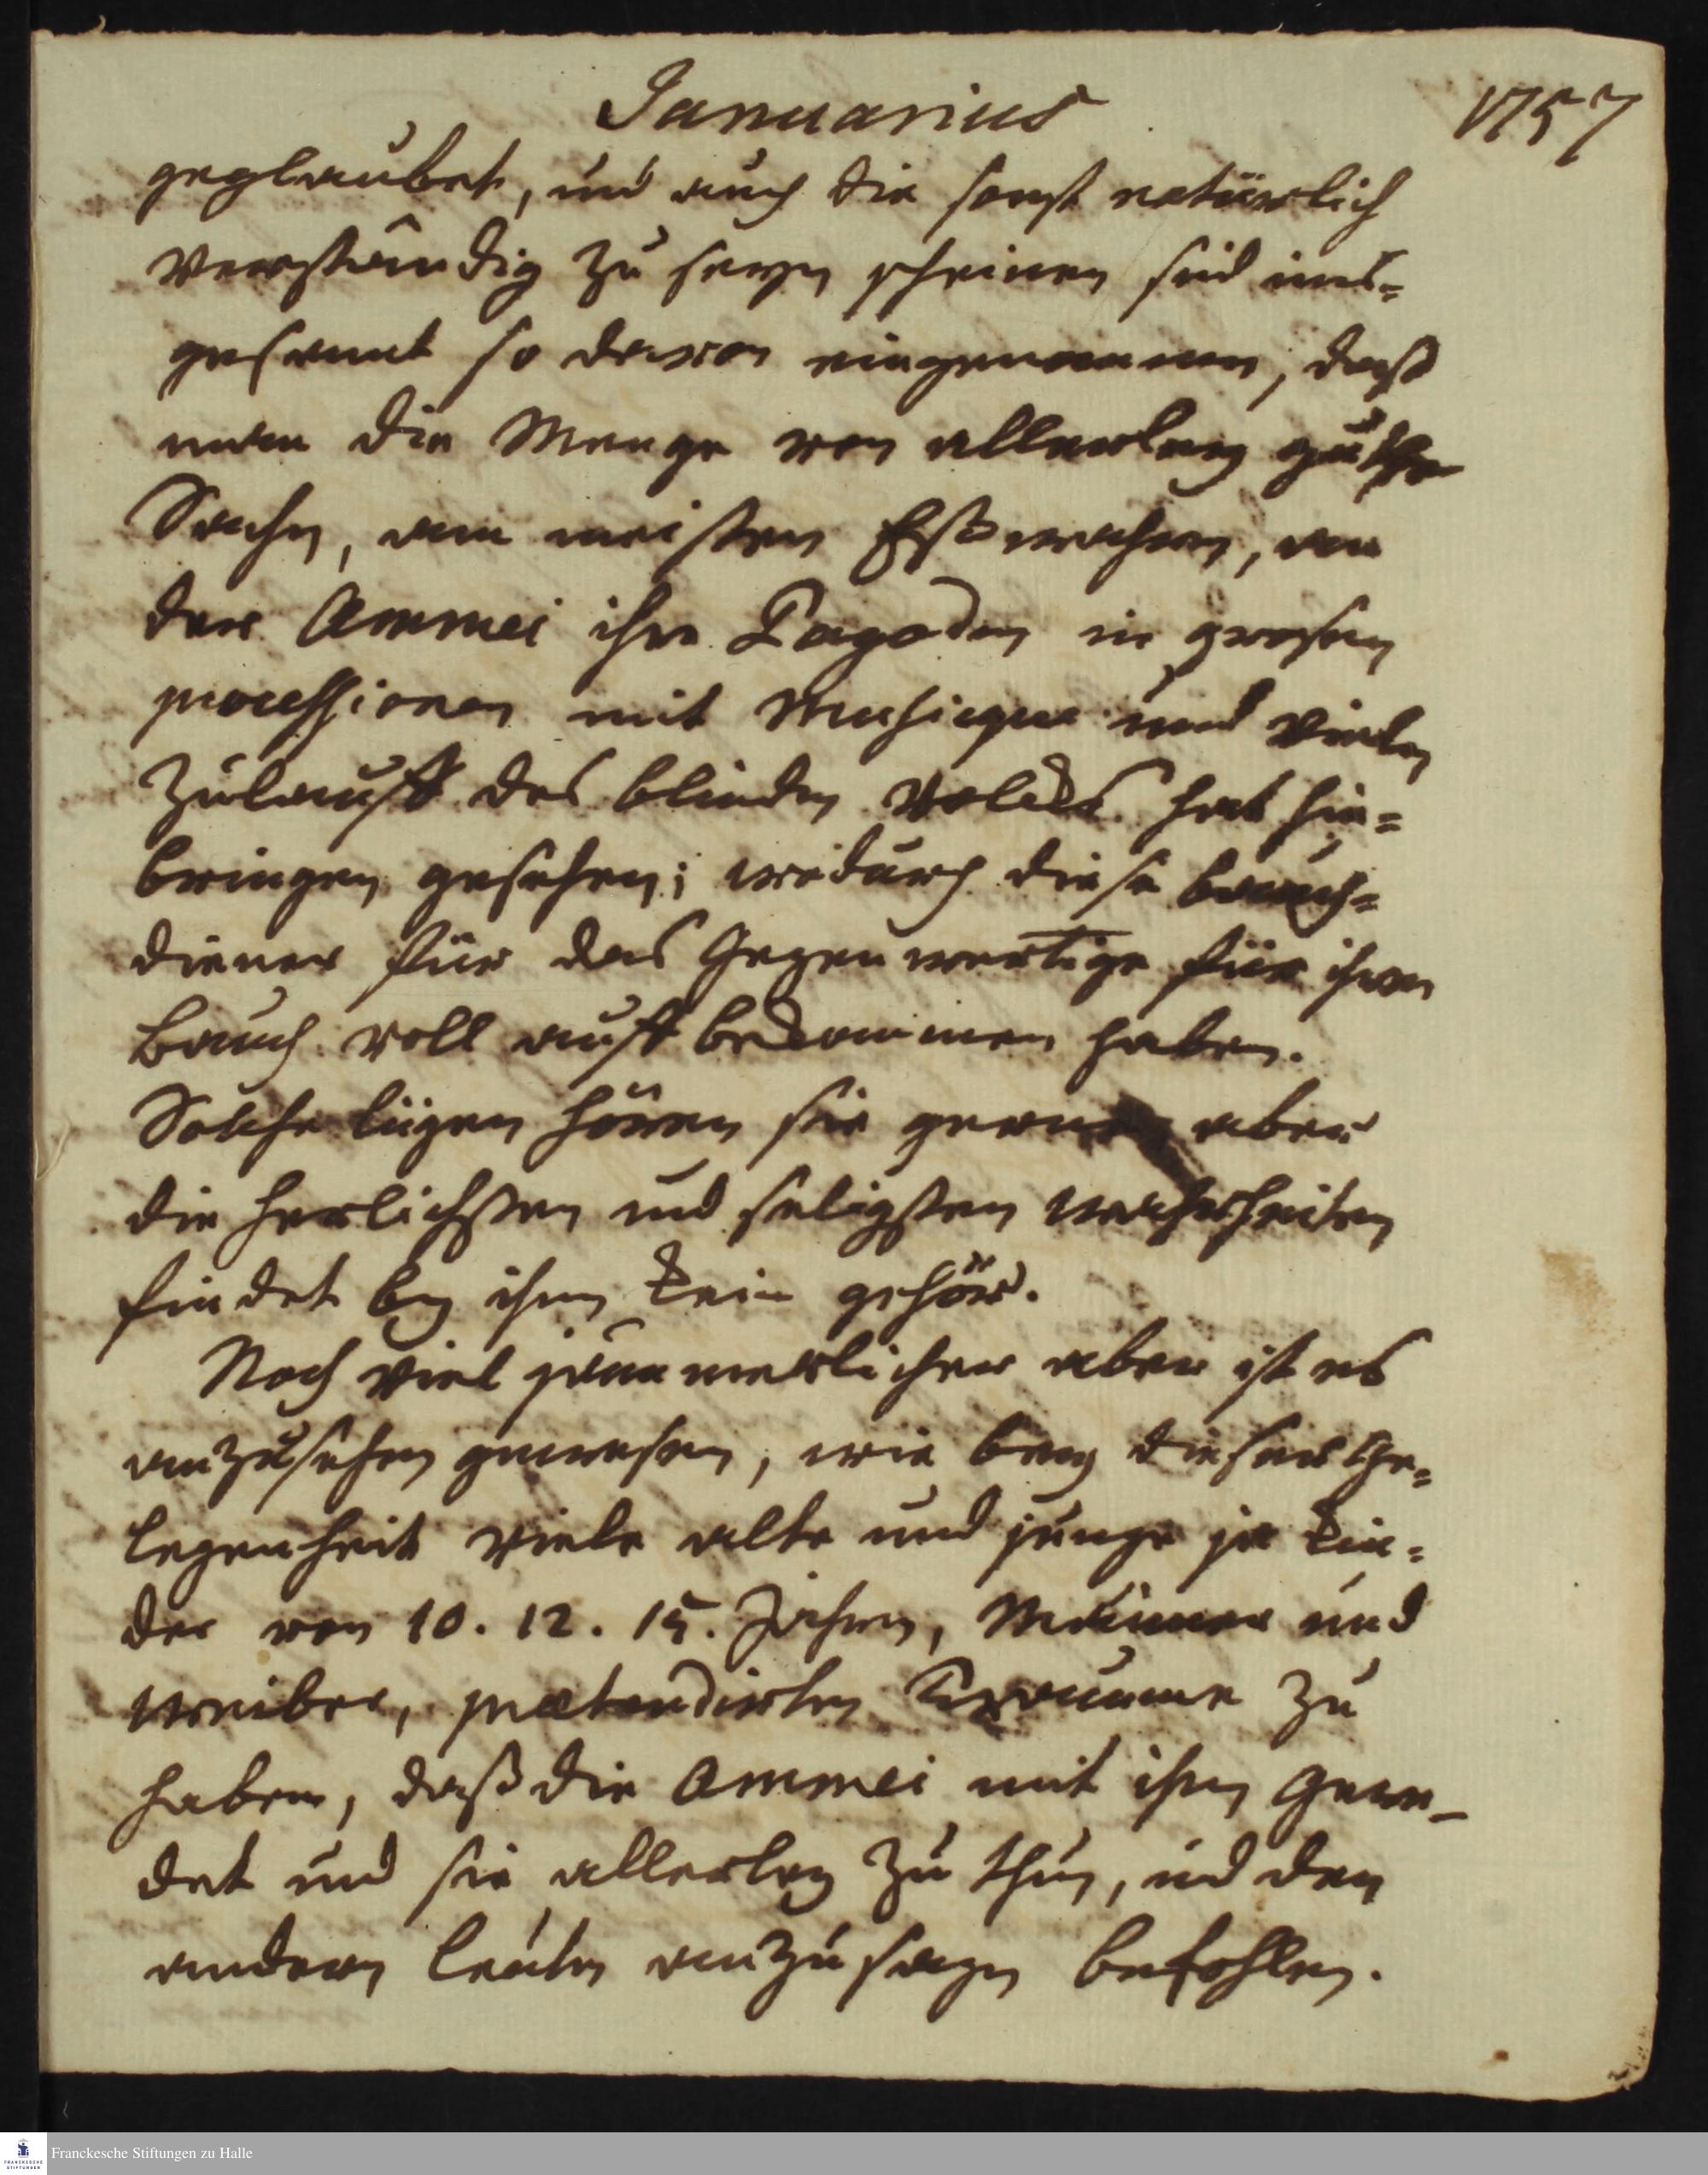 Januarius
1757
geglaubet, und auch die sonst natürlich
verständig zu seyn scheinen sind ins-
gesamt so davon eingenommen, daß
man die Menge von allerley guthe
Sachen, am meisten Eßwahren, von
der Ammei ihre Pagoden in grosen
processionen mit Musique und vielen
Zulauff des blinden Volcks hat hin-
bringen gesehen; wodurch diese bauch-
diener für das Gegenwertige für ihren
Bauch voll auff bekommen haben.
Solche lügen hören sie gerne aber
die herlichsten und seligsten wahrheiten
findet bey ihnen kein gehör.
Noch viel jämmerlicher aber ist es
anzusehen gewesen, wie bey dieser Ge-
legenheit viele alte und junge ja Kin-
der von 10. 12. 15. Jahren, Männer und
weiber, prætendirten Träume zu
haben, daß die Ammei mit ihnen gere-
det und sie allerley zu thun, und den
andern leuten anzusagen befohlen.
Franckesche Stiftungen zu Halle